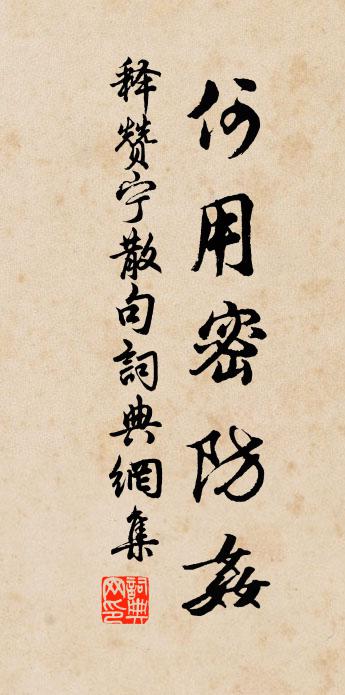 何用密防姦
释赞宁散句詞典網集
詞典网印